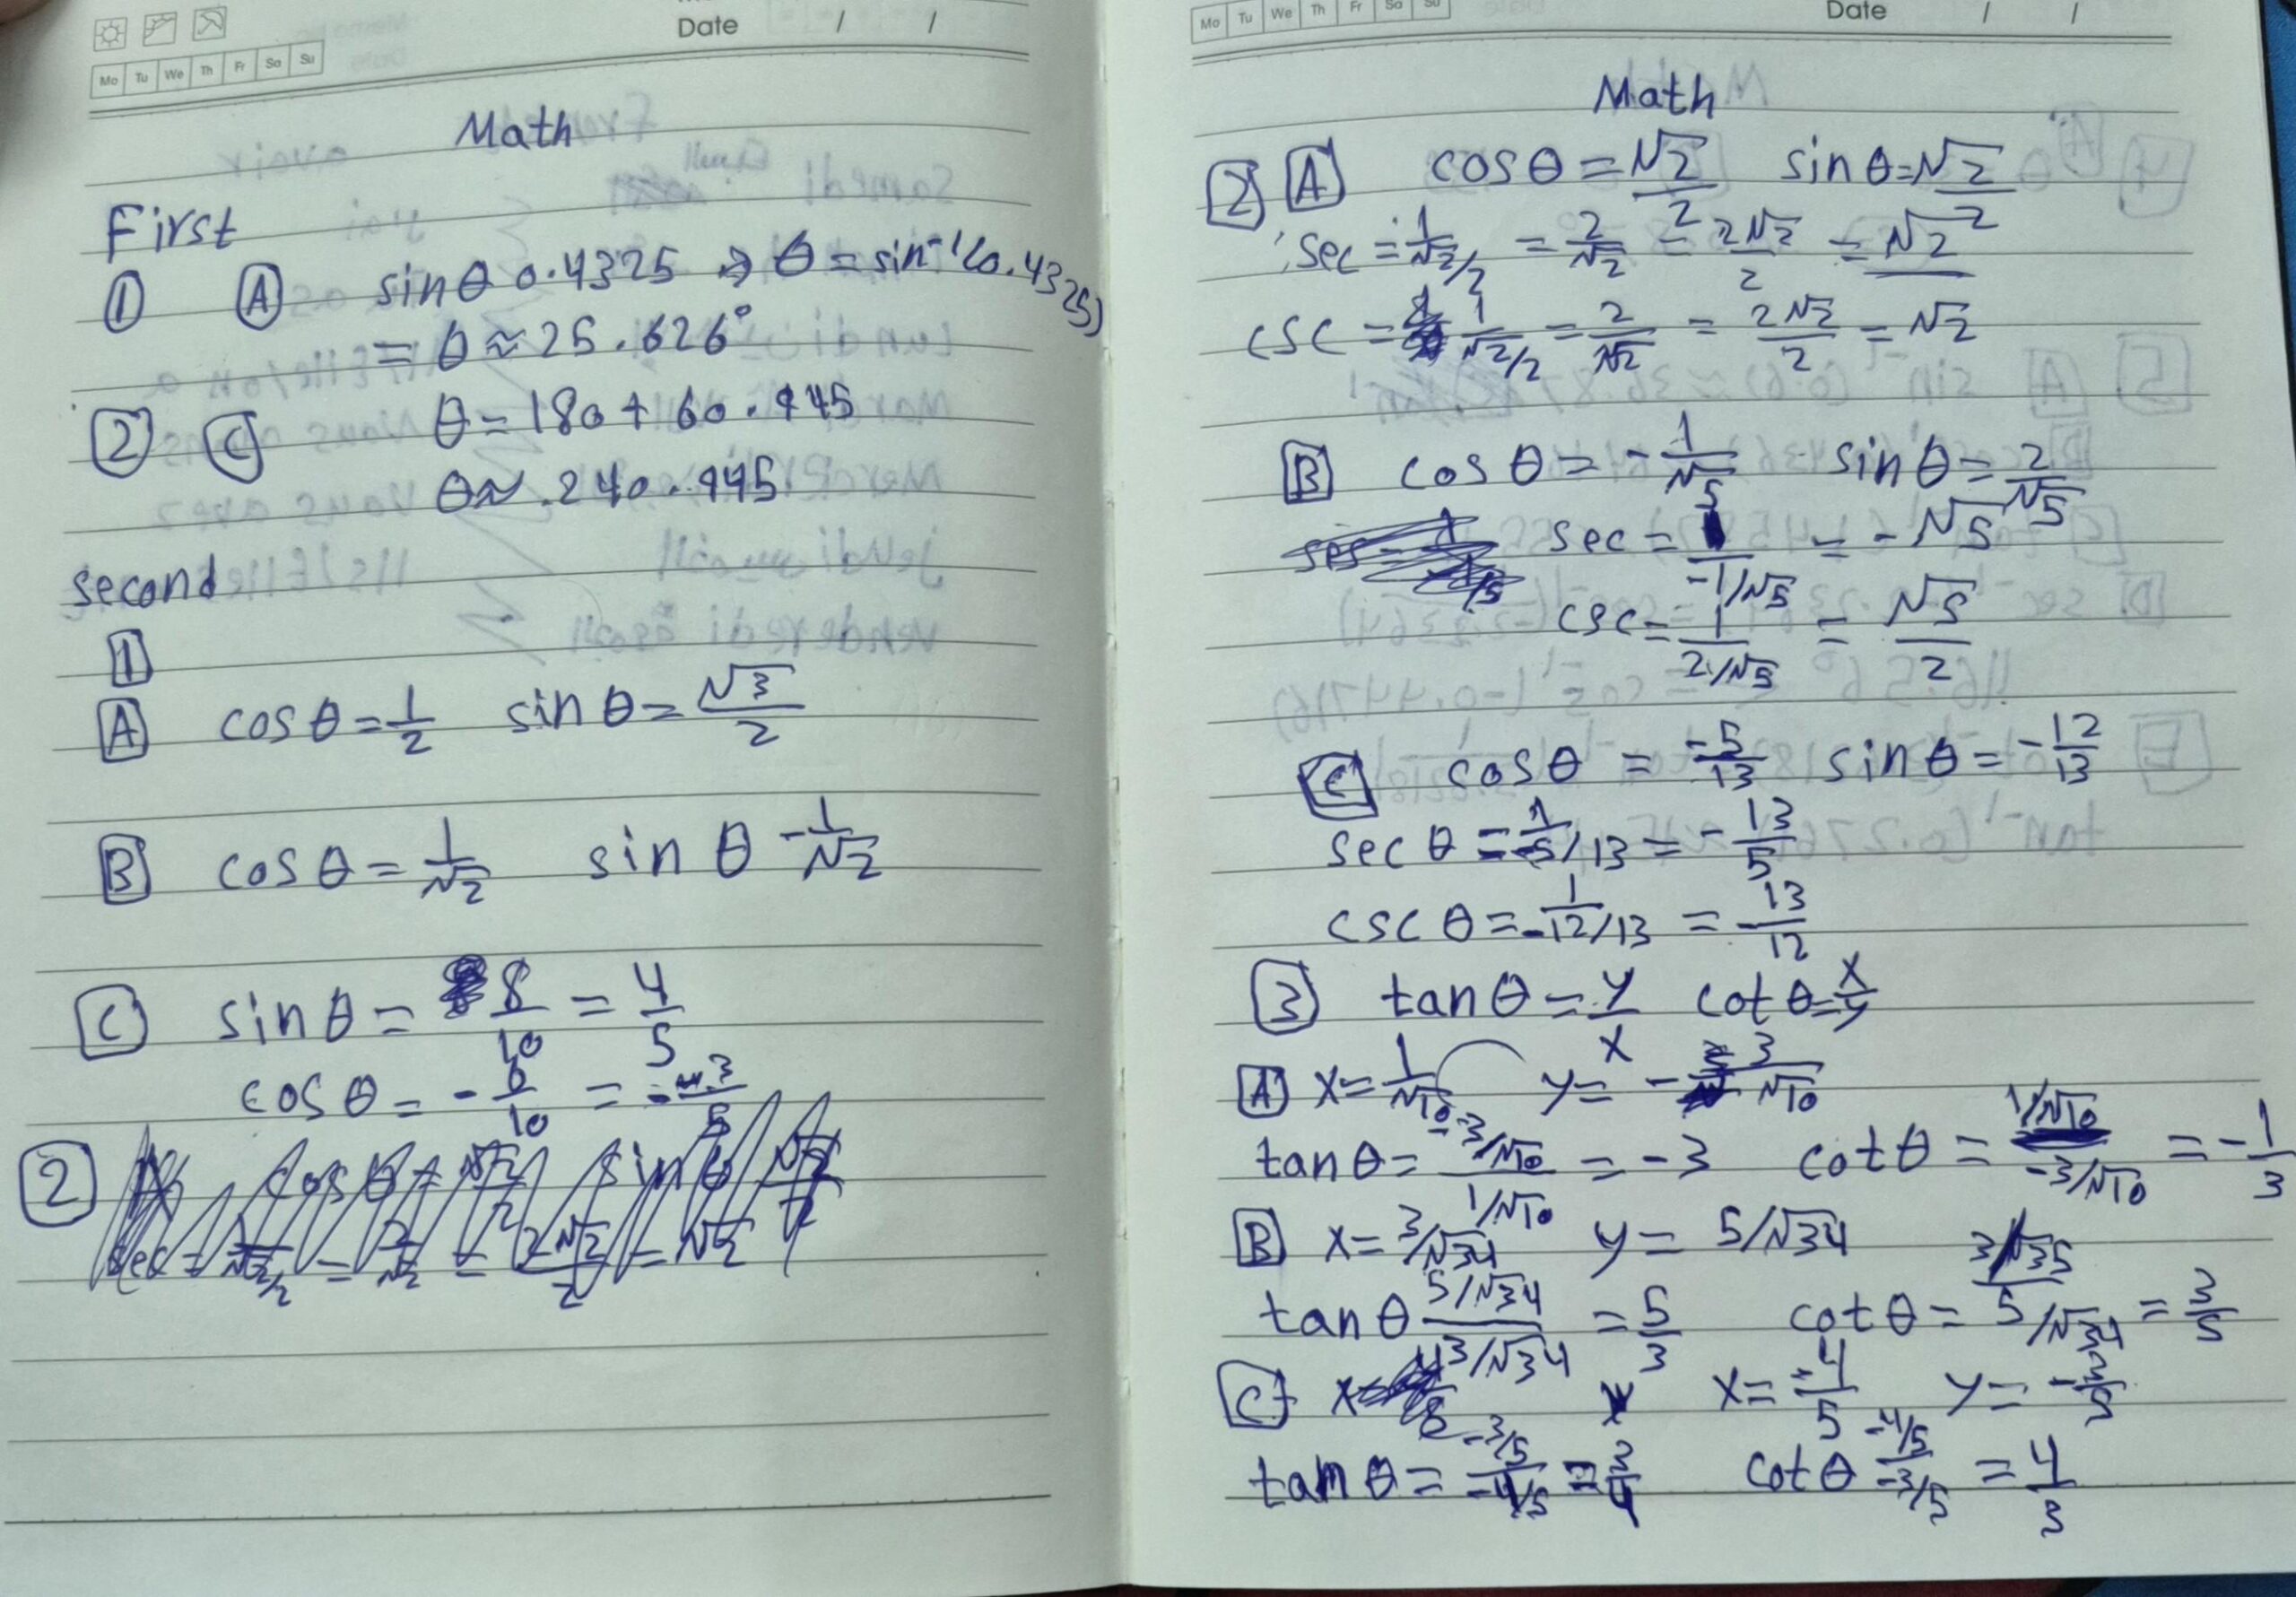 Date / /
Mo Tu We Th Fr Sa Su
Math
First
① Ⓐ sinθ 0.4325 ⇒ θ = sin⁻¹(0.4325)
= θ ≈ 25.626°
② Ⓒ θ = 180 + 60.945
θ ≈ 240.945
second
1
A cosθ = 1/2 sinθ = √3/2
B cosθ = 1/√2 sin θ -1/√2
C sinθ = 8/10 = 4/5
cosθ = -6/10 = -3/5
2
Mo Tu We Th Fr Sa Su
Date / /
Math
2 A cosθ = √2/2 sinθ = √2/2
sec = 1/√2/2 = 2/√2 = 2√2/2 = √2
csc = 1/√2/2 = 2/√2 = 2√2/2 = √2
B cosθ = -1/√5 sinθ = 2/√5
sec = 1/-1/√5 = -√5
csc = 1/2/√5 = √5/2
C cosθ = -5/13 sinθ = -12/13
secθ = 1/-5/13 = -13/5
cscθ = 1/-12/13 = -13/12
3 tanθ = y/x cotθ = x/y
A x = 1/√10 y = -3/√10
tanθ = -3/√10/1/√10 = -3 cotθ = 1/√10/-3/√10 = -1/3
B x = 3/√34 y = 5/√34
tanθ 5/√34/3/√34 = 5/3 cotθ = 3/√35/5/√34 = 3/5
C x = -4/5 y = -3/5
tanθ = -3/5/-4/5 = 3/4 cotθ -4/5/-3/5 = 4/3